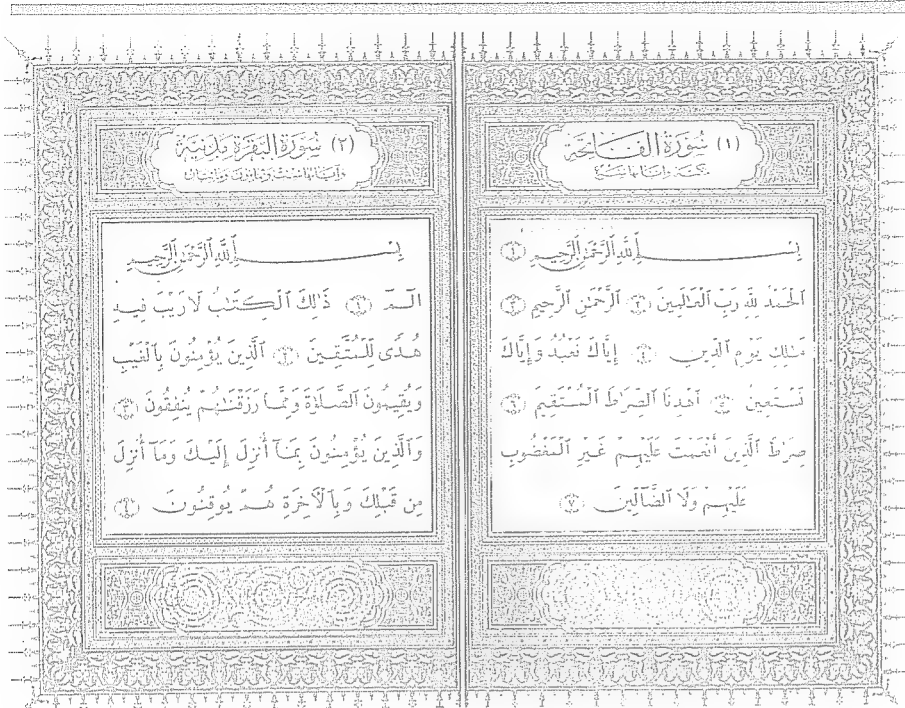 (١) سُورَةُ الفَاتِحَة
مَكيَّة وَآيَاتُهَا سَبْع
بِسْمِ ٱللَّهِ ٱلرَّحْمَٰنِ ٱلرَّحِيمِ ١
ٱلْحَمْدُ لِلَّهِ رَبِّ ٱلْعَٰلَمِينَ ٢ ٱلرَّحْمَٰنِ ٱلرَّحِيمِ ٣
مَٰلِكِ يَوْمِ ٱلدِّينِ ٤ إِيَّاكَ نَعْبُدُ وَإِيَّاكَ
نَسْتَعِينُ ٥ ٱهْدِنَا ٱلصِّرَٰطَ ٱلْمُسْتَقِيمَ ٦
صِرَٰطَ ٱلَّذِينَ أَنْعَمْتَ عَلَيْهِمْ غَيْرِ ٱلْمَغْضُوبِ
عَلَيْهِمْ وَلَا ٱلضَّآلِّينَ ٧
(٢) سُورَةُ البَقَرَةِ مَدَنِيَّة
وَآيَاتُهَا سِتٌّ وَثَمَانُونَ وَمِائَتَانِ
بِسْمِ ٱللَّهِ ٱلرَّحْمَٰنِ ٱلرَّحِيمِ
الٓمٓ ١ ذَٰلِكَ ٱلْكِتَٰبُ لَا رَيْبَ فِيهِ
هُدًى لِّلْمُتَّقِينَ ٢ ٱلَّذِينَ يُؤْمِنُونَ بِٱلْغَيْبِ
وَيُقِيمُونَ ٱلصَّلَوٰةَ وَمِمَّا رَزَقْنَٰهُمْ يُنفِقُونَ ٣
وَٱلَّذِينَ يُؤْمِنُونَ بِمَآ أُنزِلَ إِلَيْكَ وَمَآ أُنزِلَ
مِن قَبْلِكَ وَبِٱلْأَخِرَةِ هُمْ يُوقِنُونَ ٤